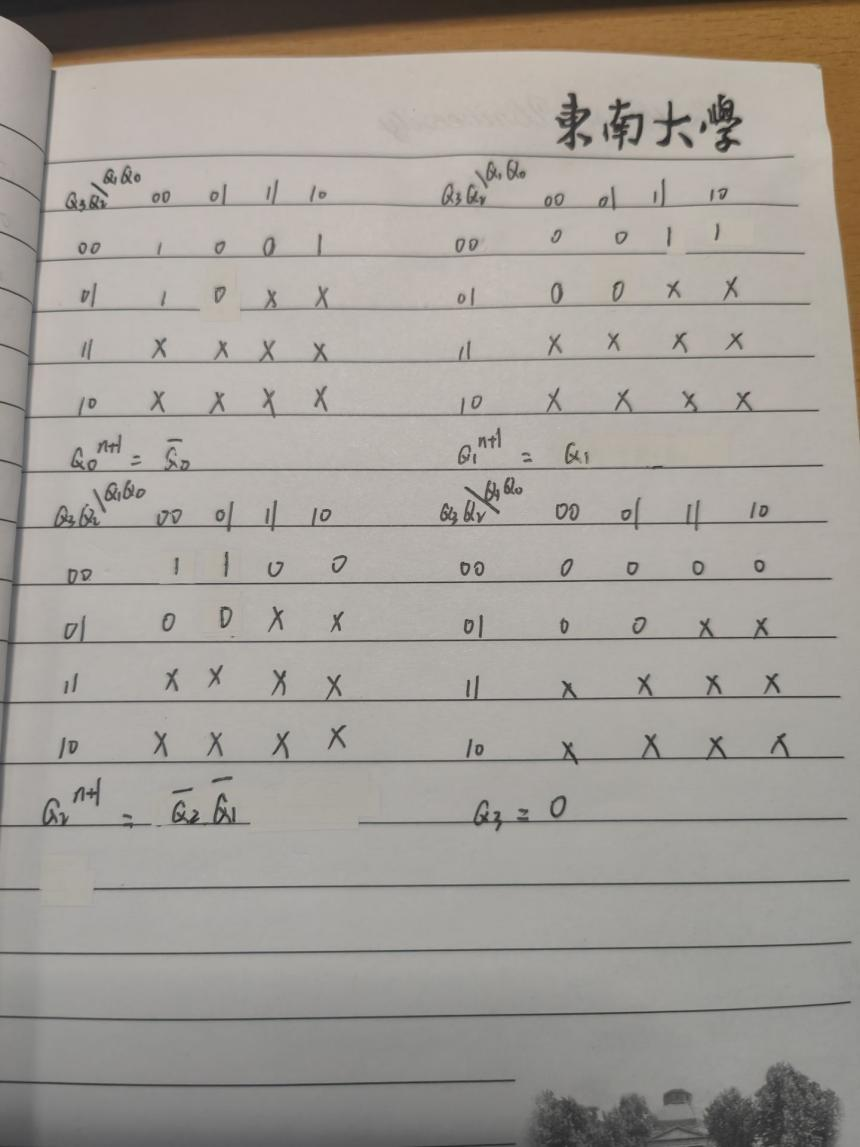 東南大學
Q₃Q₂\Q₁Q₀ 00 01 11 10
00 1 0 0 1
01 1 0 X X
11 X X X X
10 X X X X
Q₀ⁿ⁺¹ = Q̅₀
Q₃Q₂\Q₁Q₀ 00 01 11 10
00 0 0 1 1
01 0 0 X X
11 X X X X
10 X X X X
Q₁ⁿ⁺¹ = Q₁
Q₃Q₂\Q₁Q₀ 00 01 11 10
00 1 1 0 0
01 0 0 X X
11 X X X X
10 X X X X
Q₂ⁿ⁺¹ = Q̅₂ Q̅₁
Q₃Q₂\Q₁Q₀ 00 01 11 10
00 0 0 0 0
01 0 0 X X
11 X X X X
10 X X X X
Q₃ = 0